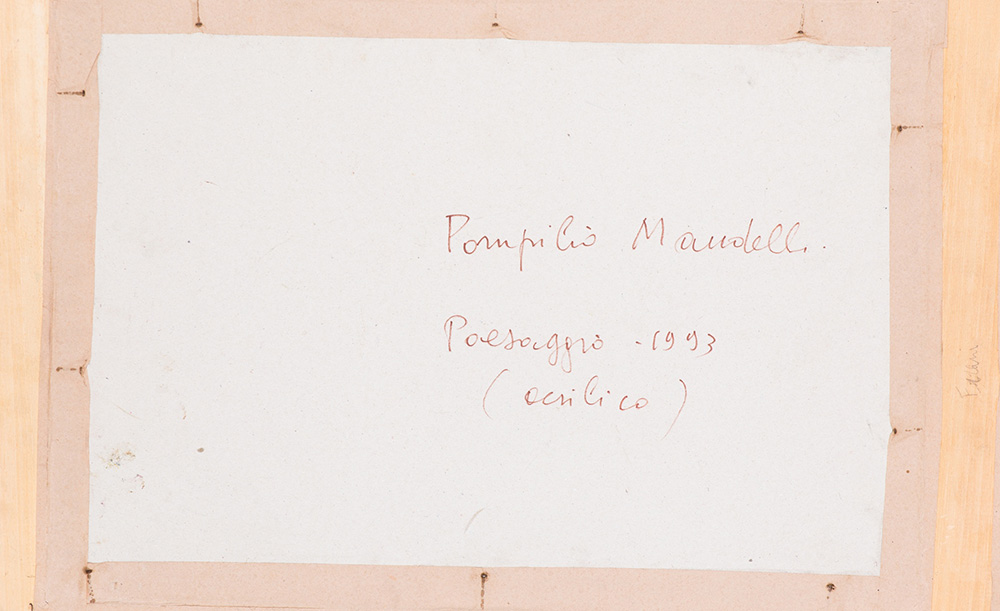 Pompilio Mandelli.
Paesaggio - 1993
(acrilico)